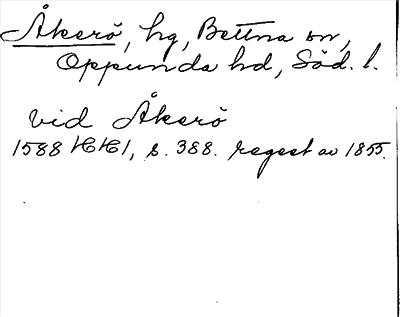 Åkerö, hg, Bettna sn,
Oppunda hd, Söd. l.
vid Åkerö
1588 HH1, s. 388. regest av 1855.